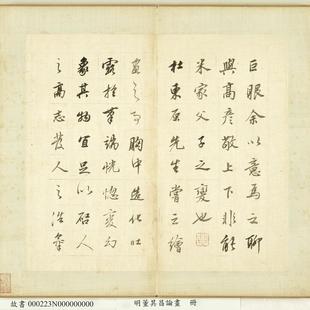 巨眼余以意為之聊
與高彥敬上下非能
米家父子之變也
杜東原先生嘗云繪
畫之事胸中造化吐
露於筆端恍惚變幻
象其物宜足以啟人
之高志發人之浩氣
故書 000223N000000000 明董其昌論畫 冊